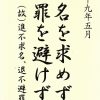 九年五月
名を求めず
罪を避けず
(故)進不求名、退不避罪